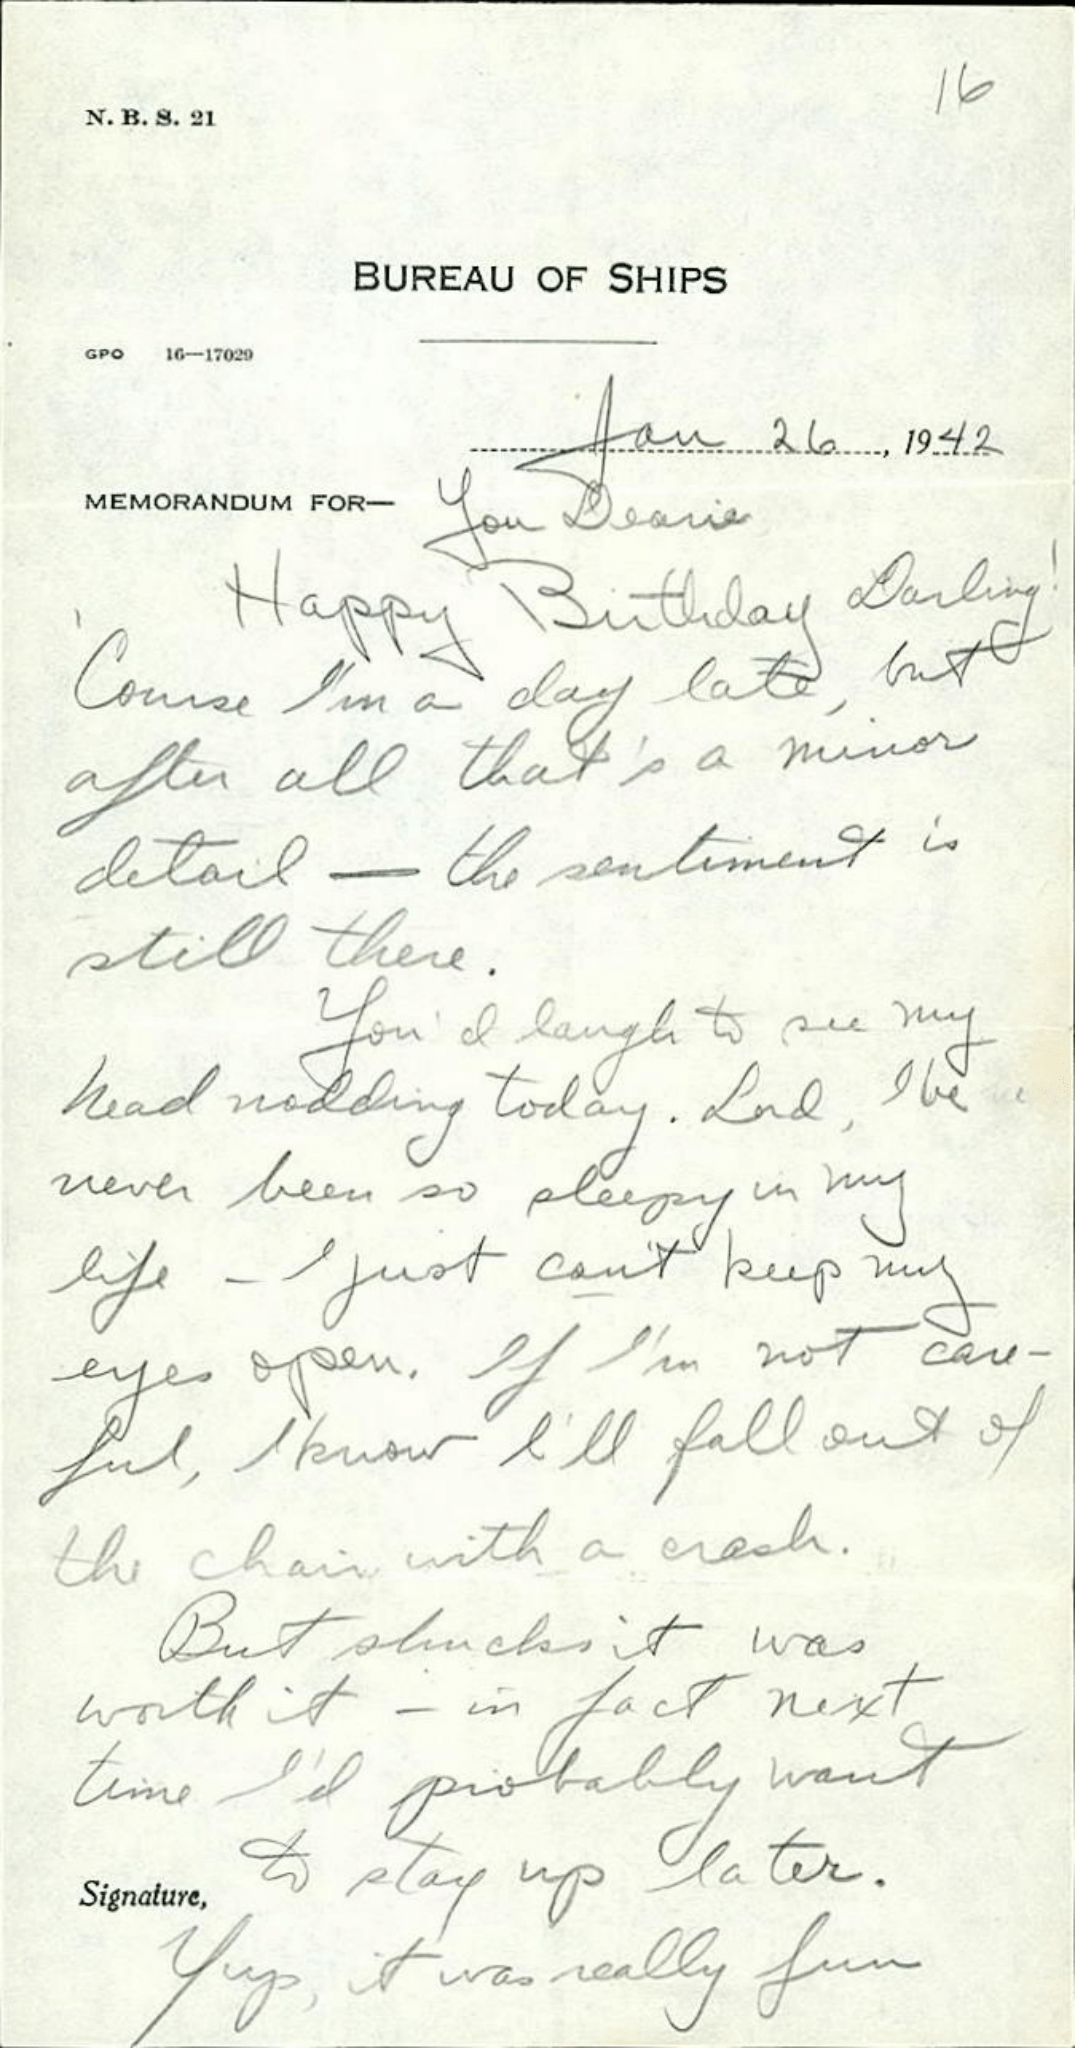 16
N. B. S. 21
BUREAU OF SHIPS
GPO 16—17029
Jan 26, 1942
MEMORANDUM FOR— You Dearie
Happy Birthday Darling!
'Course I'm a day late, but
after all that's a minor
detail — the sentiment is
still there.
You'd laugh to see my
head nodding today. Lord, I've
never been so sleepy in my
life – I just can't keep my
eyes open. If I'm not care-
ful, I know I'll fall out of
the chair with a crash.
But shucks it was
worth it – in fact next
time I'd probably want
to stay up later.
Signature,
Yup, it was really fun